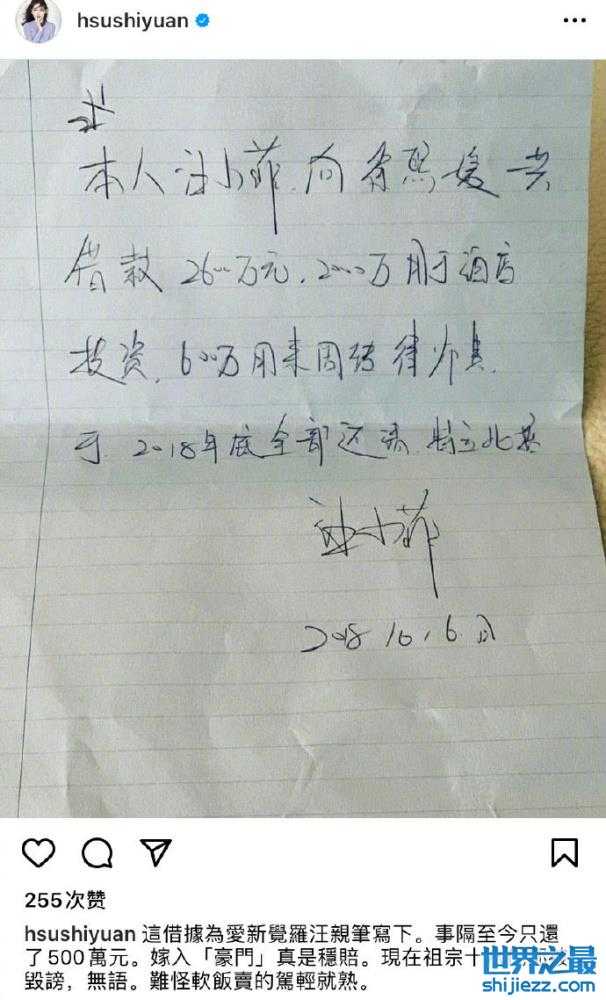 hsushiyuan
本人汪小菲向徐熙媛共
借款2600万元,2000万用于酒店
投资,600万用来周转律师
于2018年底全部还清,特立此据
汪小菲
2018.10.6日
255次赞
hsushiyuan 這借據為愛新覺羅汪親筆寫下。事隔至今只還
了500萬元。嫁入「豪門」真是穩賠。現在祖宗十
毀謗，無語。難怪軟飯賣的駕輕就熟。
世界之最
shijiezz.com